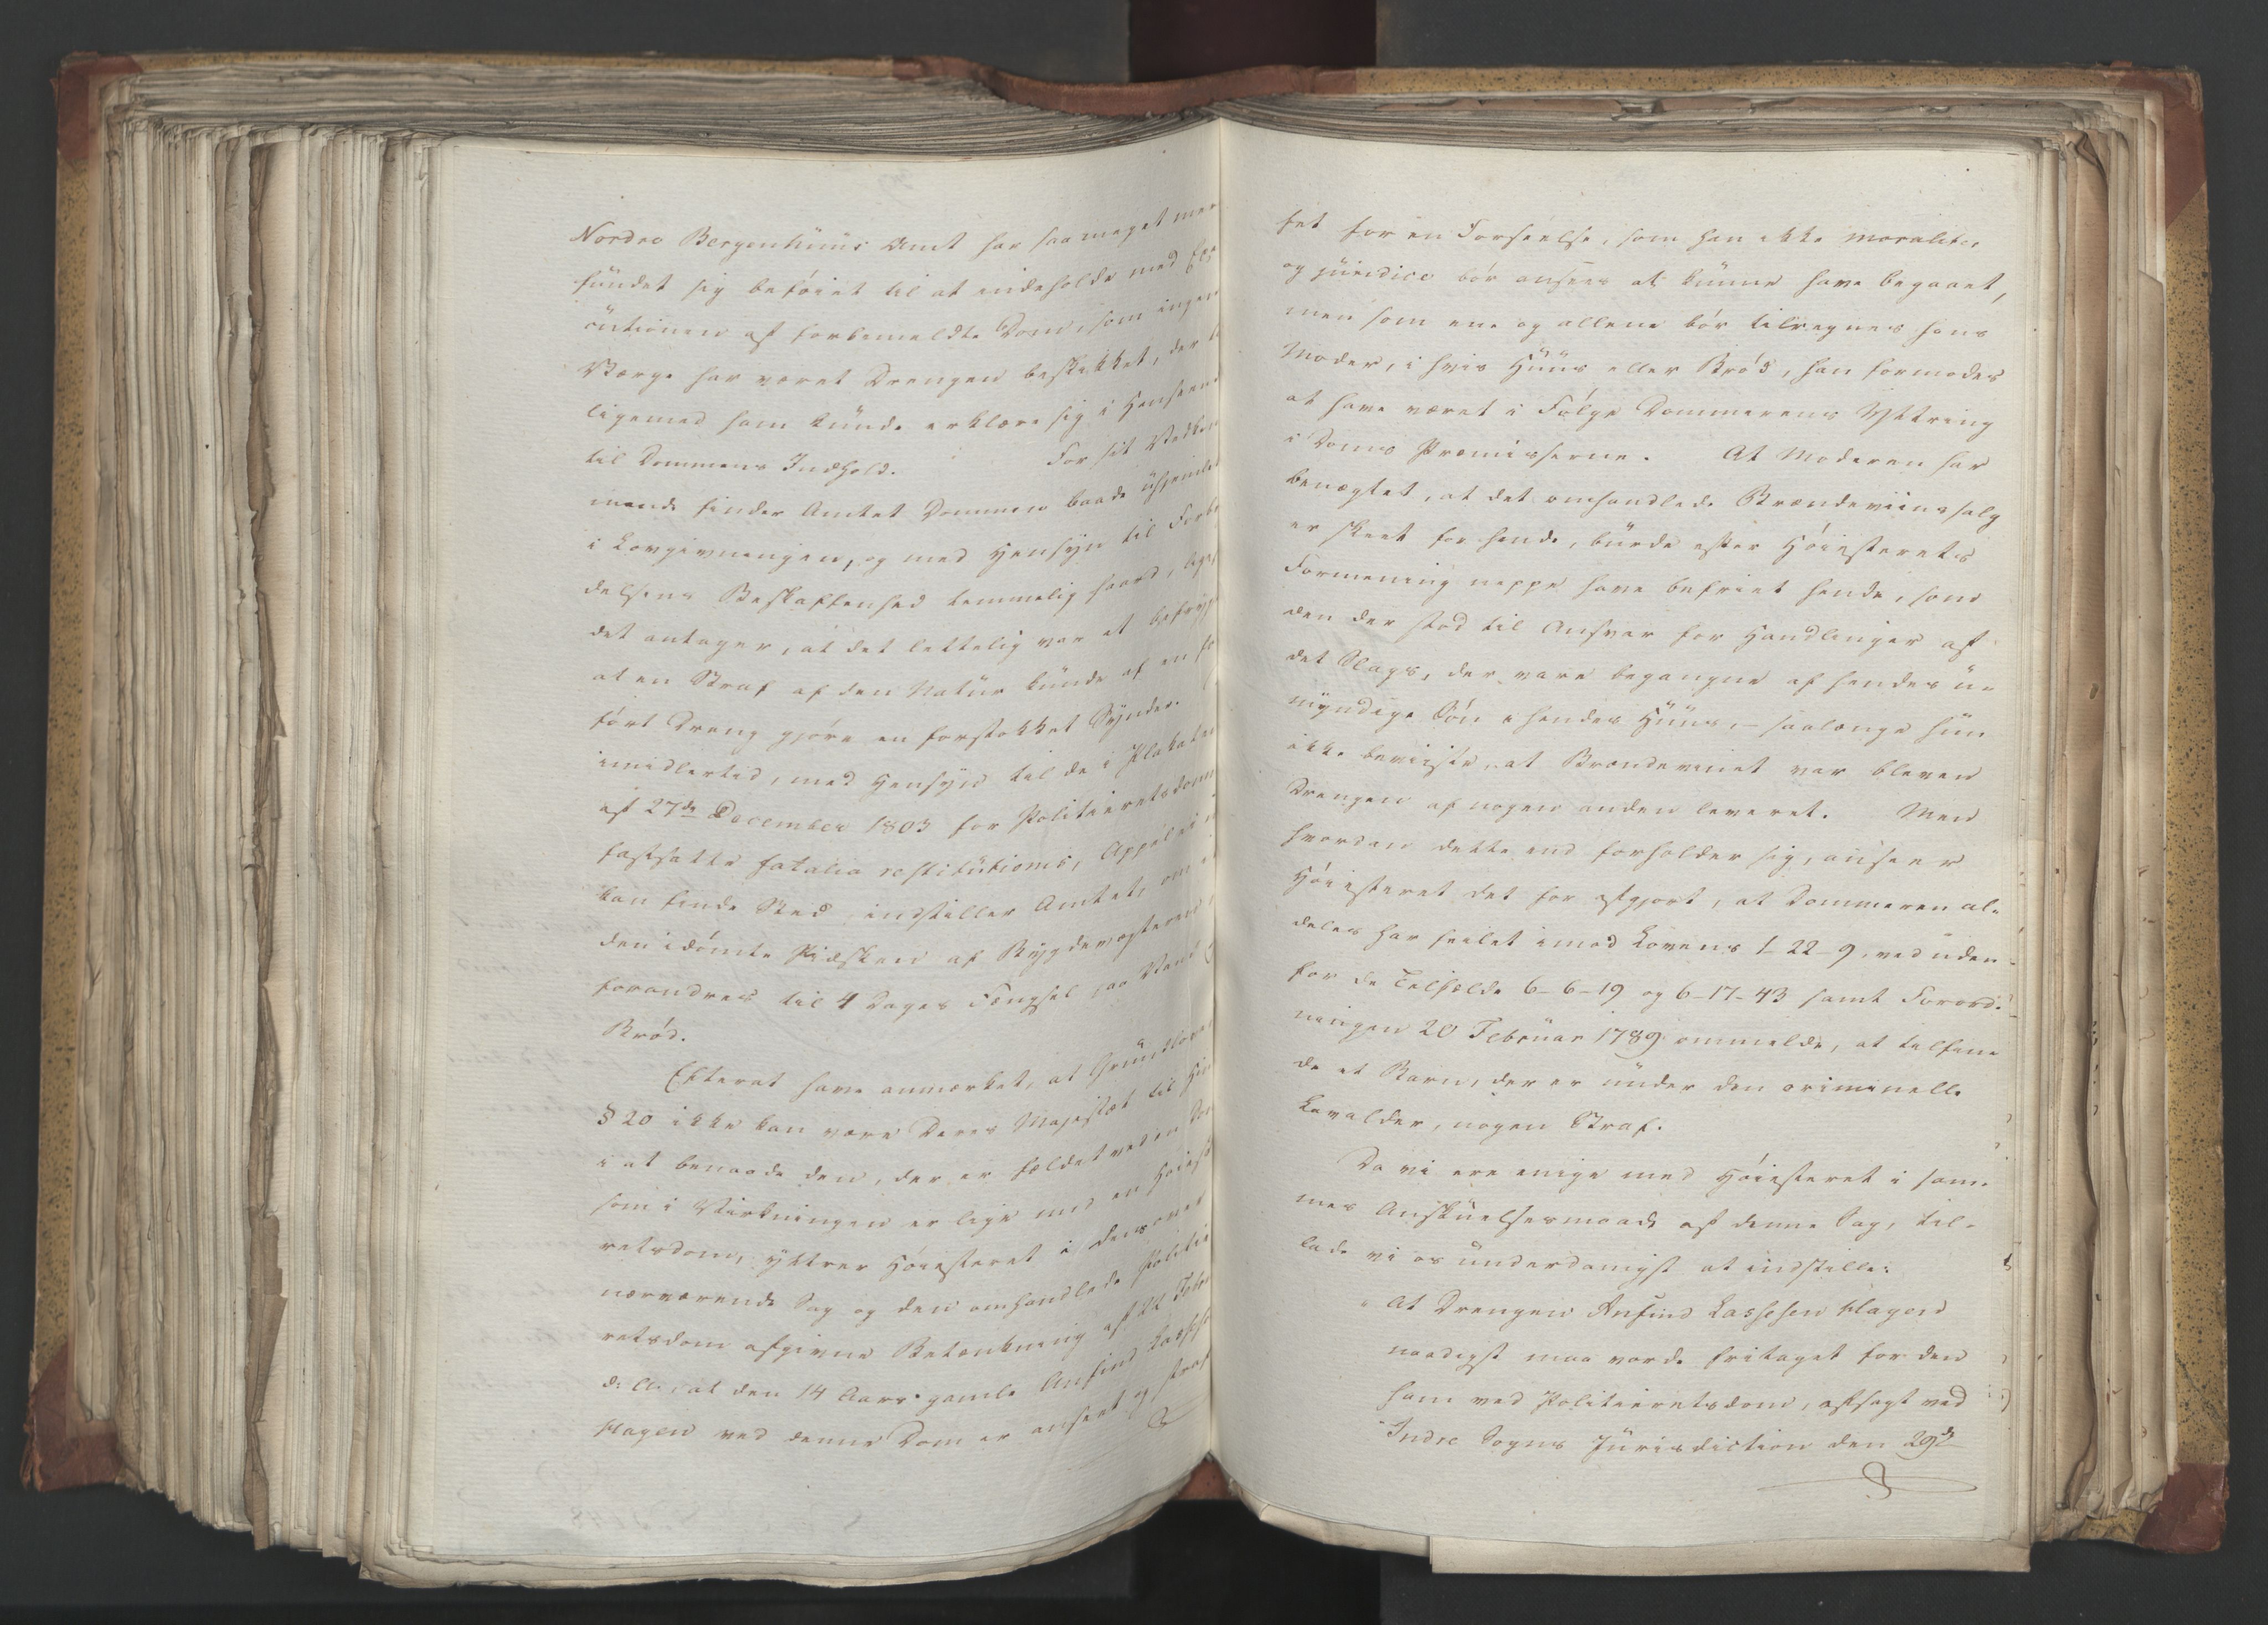 Nordre Bergenhuus Amt har saa meget mer
fundet sig beføiet til at indeholde med Exe
cutionen af forbemeldte Dom, som ingen
Værge har været Drengen beskikket, der
ligemed ham kunde erklære sig i Henseende
til Dommens Indhold. For sit Vedkom
mende finder Amtet Dommen baade uhjemlet
i Lovgivningen, og med Hensyn til Forbry
delsens Beskaffenhed temmelig haard,
det antager, at det lettelig var at befrygte
at en Straf af den Natur kunde af en for
ført Dreng gjøre en forstokket Synder.
imidlertid, med Hensyn til de i Plakaten
af 27de December 1803 for Politieretsdomme
fastsatte fatalia restitutionis, Appel ei
kan finde Sted indstiller Amtet, om ei
den idømte Pidsken af Bygdevægteren
forandres til 4 Dages Fængsel paa Vand
Brød.
Efterat have anmærket, at Grundlovens
§ 20 ikke kan være Deres Majestæt til Hin
i at benaade den, der er fældet ved en Dom
som i Virkningen er lige med en Høieste
retsdom, yttrer Høiesteret i dens over
nærværende Sag og den omhandlede Politie
retsdom afgivne Betænkning af 22 Febr
d. A., at den 14 Aars gamle Anfind Lassesen
Hagen ved denne Dom er anseet og straf
fet for en Forseelse, som han ikke moraliter
og juridice bør ansees at kunne have begaaet,
men som ene og allene bør tilregnes hans
Moder, i hvis Huus eller Brød, han formodes
at have været i Følge Dommerens Yttring
i Doms Præmisserne. At Moderen har
benægtet, at det omhandlede Brændeviinssalg
er skeet for hende, burde efter Høiesterets
Formening neppe have befriet hende, som
den der stod til Ansvar for Handlinger af
det Slags, der vare begangne af hendes u-
myndige Søn i hendes Huus, – saalænge hun
ikke beviiste, at Brændevinet var bleven
Drengen af nogen anden leveret. Men
hvordan dette end forholder sig, anseer
Høiesteret det for afgjort, at Dommeren al-
deles har feilet imod Lovens 1–22–9, ved uden-
for de Tilfælde 6–6–19 og 6–17–43 samt Forord-
ningen 20 Februar 1789 ommelde, at tilfinde
de et Barn, der er under den criminelle
Lavalder, nogen Straf.
Da vi ere enige med Høiesteret i sam-
mes Anskuelsesmaade af denne Sag, til-
lade vi os underdanigst at indstille:
At Drengen Anfind Lassesen Hagen
naadigst maa vorde fritaget for den
ham ved Politieretsdom, afsagt ved
Indre Sogns Jurisdiction den 29de